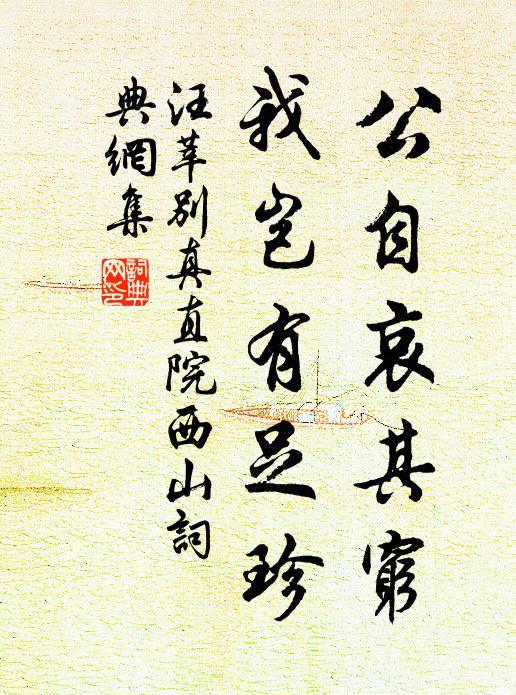 公自哀其窮
我豈有足珍
汪莘别真直院西山詞
典網集
詞典網印